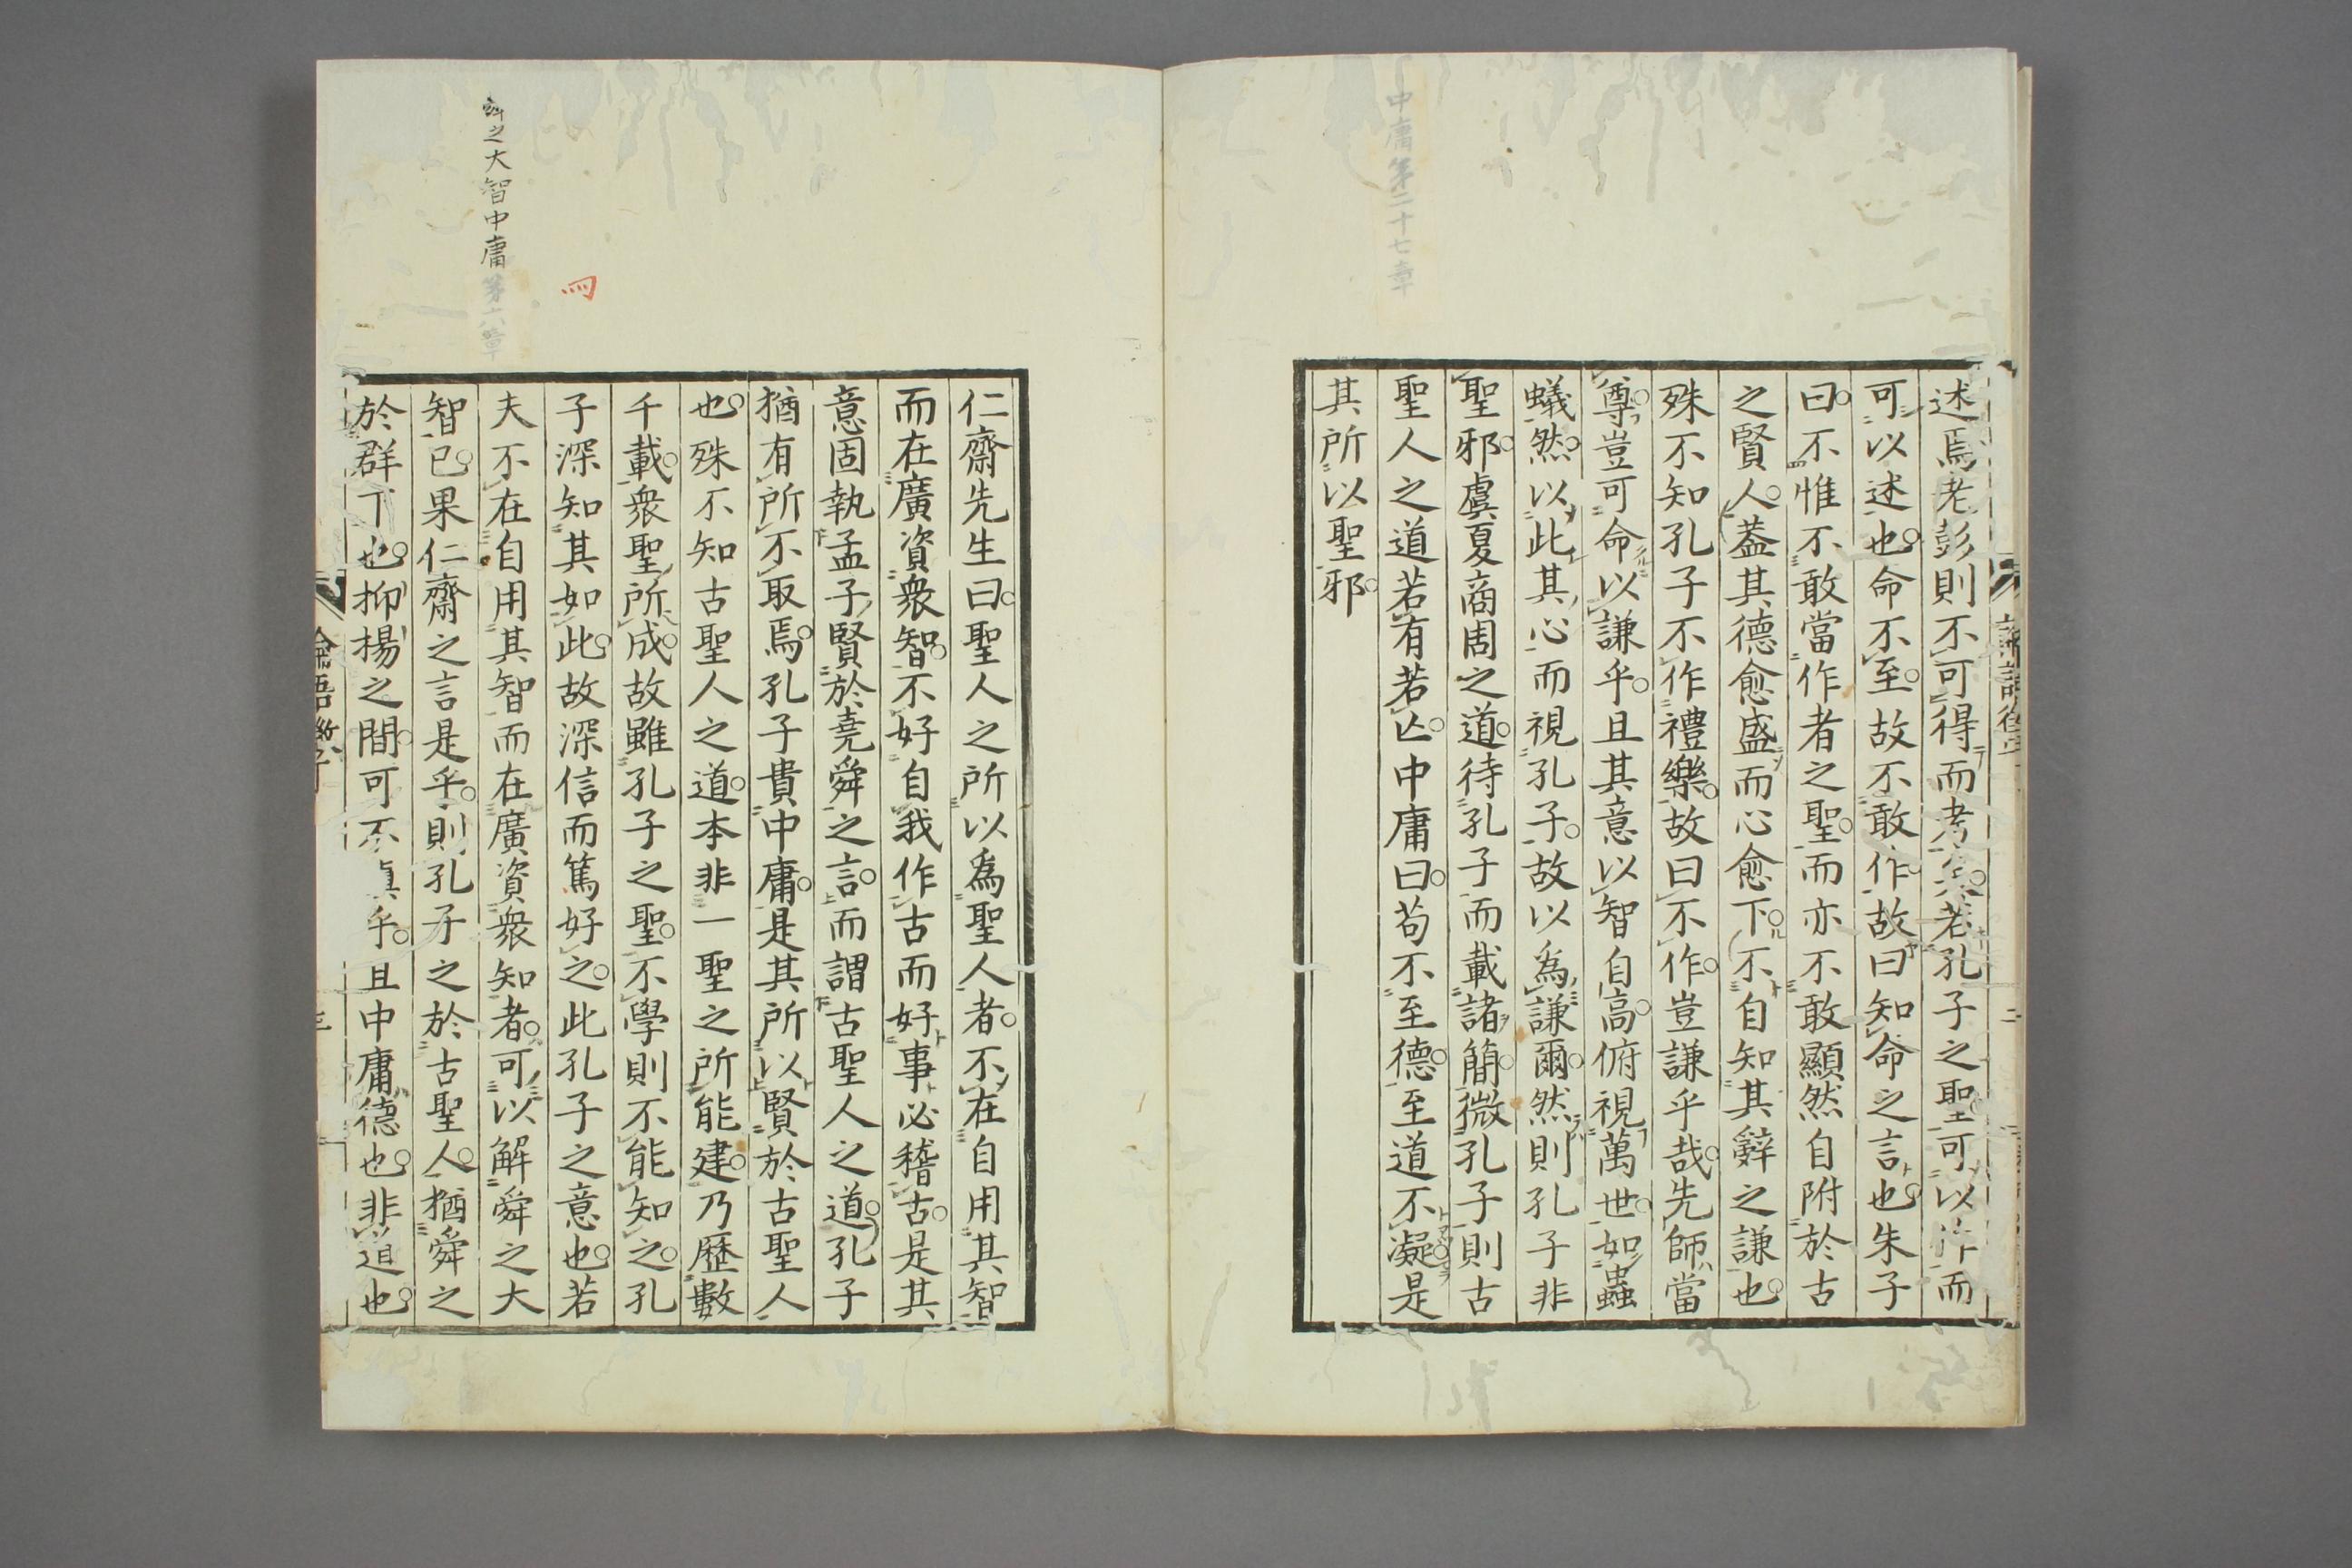 中庸第二十七章
述焉老彭則不可得而考矣若孔子之聖可以作而
可以述也命不至故不敢作故曰知命之言也朱子
曰不惟不敢當作者之聖而亦不敢顯然自附於古
之賢人蓋其德愈盛而心愈下不自知其辭之謙也
殊不知孔子不作禮樂故曰不作豈謙乎哉先師當
尊豈可命以謙乎且其意以智自高俯視萬世如蟲
蟻然以此其心而視孔子故以爲謙爾然則孔子非
聖邪虞夏商周之道待孔子而載諸簡微孔子則古
聖人之道若有若亾中庸曰苟不至德至道不凝是
其所以聖邪
舜之大智中庸第六章
仁齋先生曰聖人之所以爲聖人者不在自用其智
而在廣資衆智不好自我作古而好事必稽古是其
意固執孟子賢於堯舜之言而謂古聖人之道孔子
猶有所不取焉孔子貴中庸是其所以賢於古聖人
也殊不知古聖人之道本非一聖之所能建乃歷數
千載衆聖所成故雖孔子之聖不學則不能知之孔
子深知其如此故深信而篤好之此孔子之意也若
夫不在自用其智而在廣資衆知者可以解舜之大
智已果仁齋之言是乎則孔子之於古聖人猶舜之
於群下也抑揚之間可不慎乎且中庸德也非道也
三